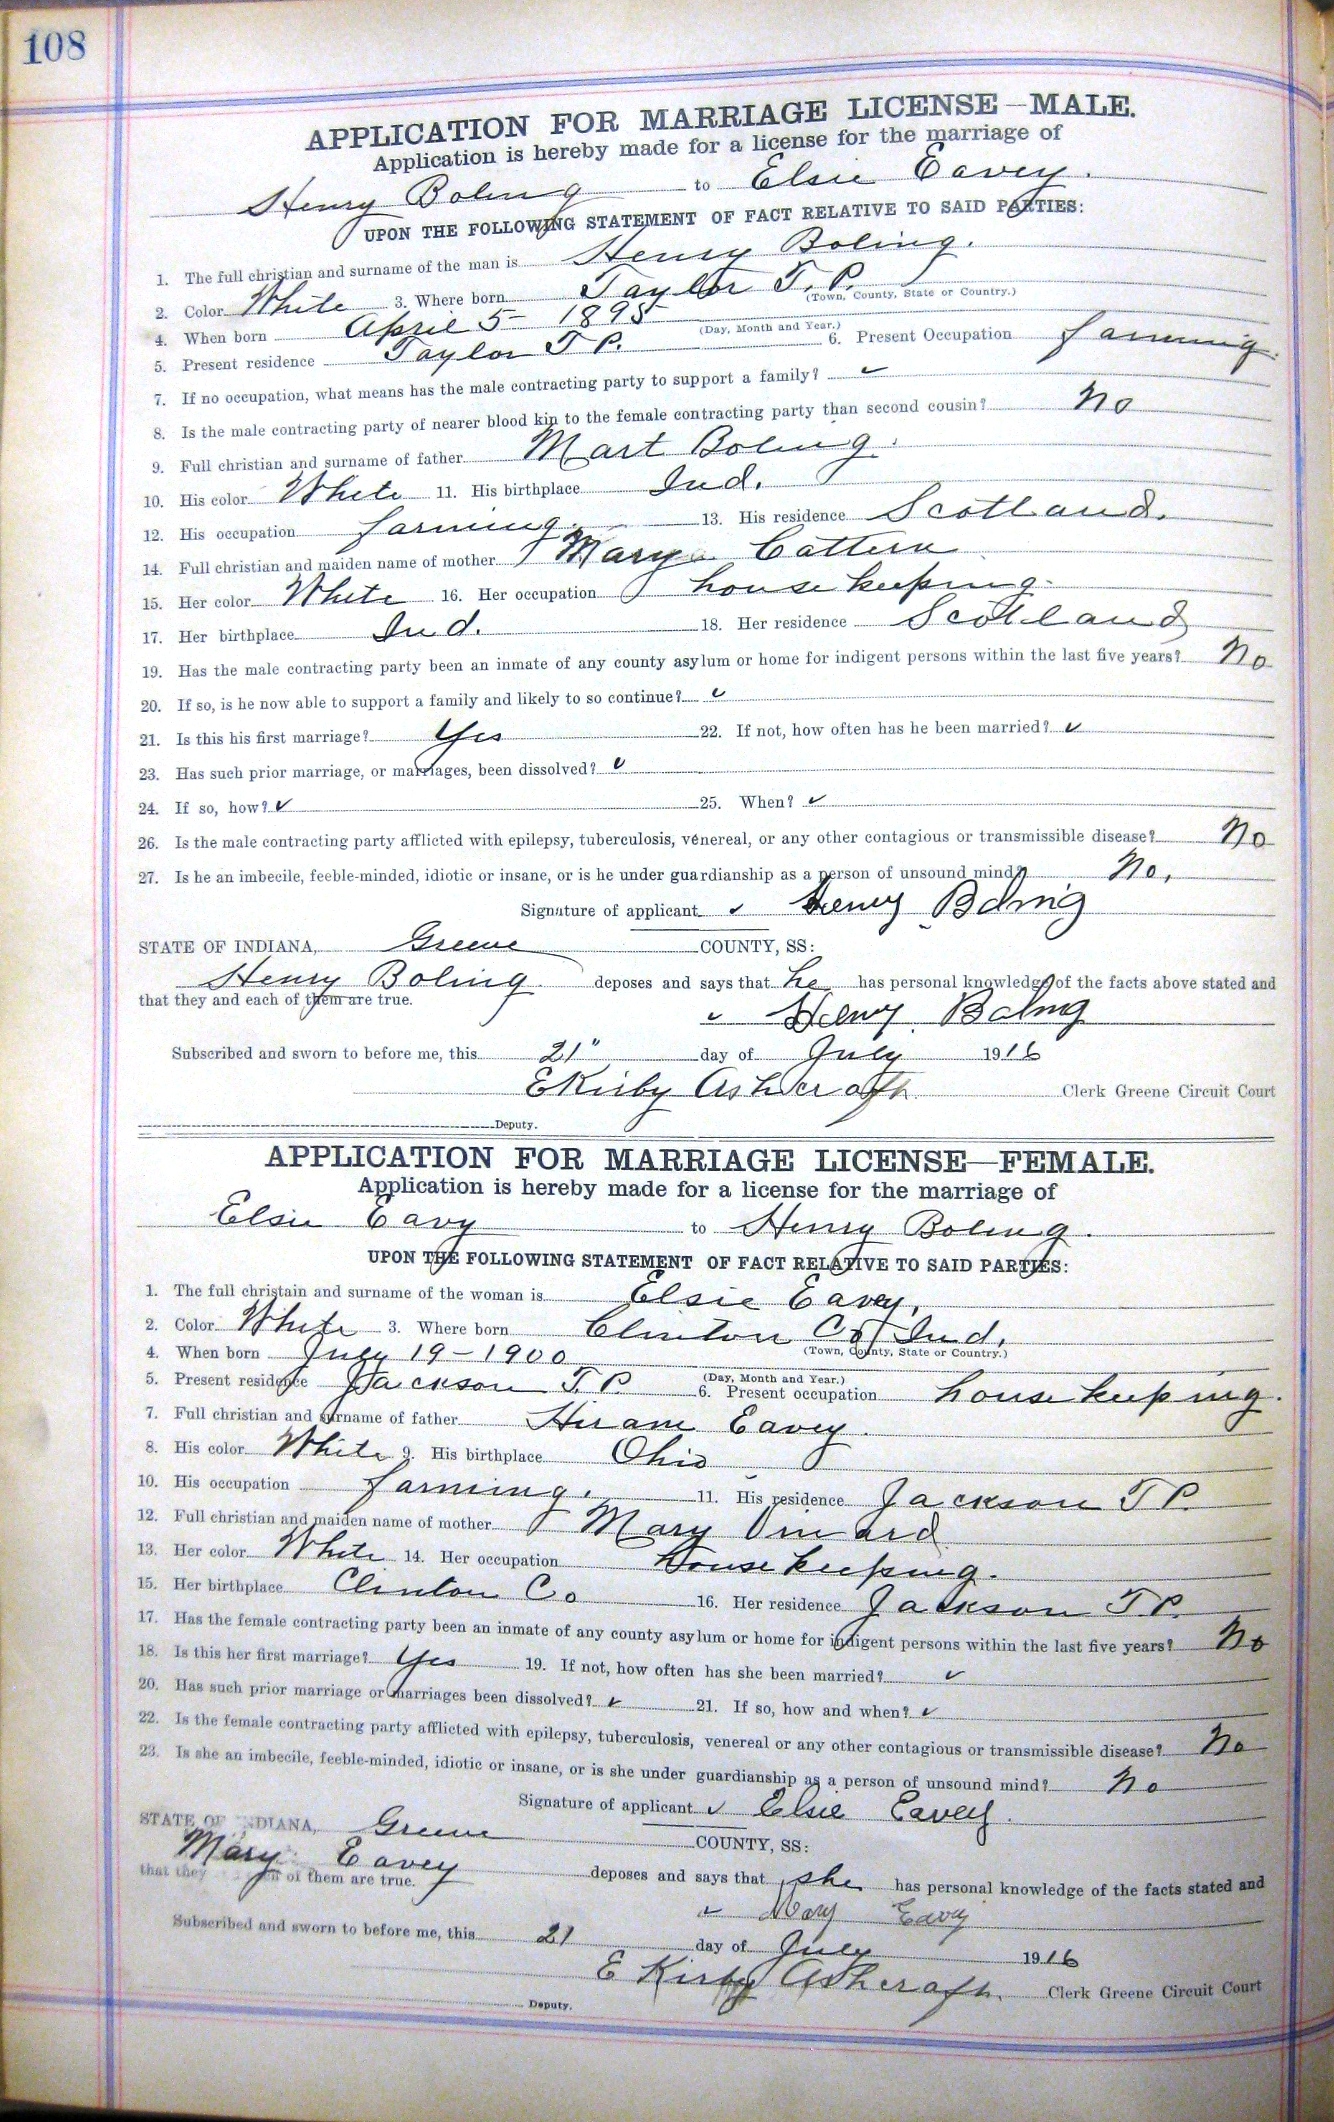 108
APPLICATION FOR MARRIAGE LICENSE—MALE.
Application is hereby made for a license for the marriage of
Henry Boling to Elsie Eavey.
UPON THE FOLLOWING STATEMENT OF FACT RELATIVE TO SAID PARTIES:
1. The full christian and surname of the man is Henry Boling.
2. Color White 3. Where born Taylor T. P.
(Town, County, State or Country.)
4. When born April 5 - 1895
(Day, Month and Year.)
5. Present residence Taylor T P. 6. Present Occupation farming.
7. If no occupation, what means has the male contracting party to support a family? ✓
8. Is the male contracting party of nearer blood kin to the female contracting party than second cousin? No
9. Full christian and surname of father Mart Boling.
10. His color White 11. His birthplace Ind.
12. His occupation farming. 13. His residence Scotland.
14. Full christian and maiden name of mother Mary Cattern
15. Her color White 16. Her occupation house keeping.
17. Her birthplace Ind. 18. Her residence Scotland
19. Has the male contracting party been an inmate of any county asylum or home for indigent persons within the last five years? No
20. If so, is he now able to support a family and likely to so continue? ✓
21. Is this his first marriage? Yes 22. If not, how often has he been married? ✓
23. Has such prior marriage, or marriages, been dissolved? ✓
24. If so, how? ✓ 25. When? ✓
26. Is the male contracting party afflicted with epilepsy, tuberculosis, venereal, or any other contagious or transmissible disease? No
27. Is he an imbecile, feeble-minded, idiotic or insane, or is he under guardianship as a person of unsound mind? No.
Signature of applicant ✓ Henry Boling
STATE OF INDIANA, Greene COUNTY, SS:
Henry Boling deposes and says that he has personal knowledge of the facts above stated and
that they and each of them are true.
✓ Henry Boling
Subscribed and sworn to before me, this 21" day of July 1916
E Kirby Ashcraft Clerk Greene Circuit Court
Deputy.
APPLICATION FOR MARRIAGE LICENSE—FEMALE.
Application is hereby made for a license for the marriage of
Elsie Eavy to Henry Boling.
UPON THE FOLLOWING STATEMENT OF FACT RELATIVE TO SAID PARTIES:
1. The full christain and surname of the woman is Elsie Eavey.
2. Color White 3. Where born Clinton Co Ind.
(Town, County, State or Country.)
4. When born July 19 - 1900
(Day, Month and Year.)
5. Present residence Jackson T. P. 6. Present occupation house keeping.
7. Full christian and surname of father Hiram Eavey.
8. His color White 9. His birthplace Ohio
10. His occupation farming. 11. His residence Jackson T P.
12. Full christian and maiden name of mother Mary Vinard
13. Her color White 14. Her occupation house keeping.
15. Her birthplace Clinton Co 16. Her residence Jackson T P.
17. Has the female contracting party been an inmate of any county asylum or home for indigent persons within the last five years? No
18. Is this her first marriage? Yes 19. If not, how often has she been married? ✓
20. Has such prior marriage or marriages been dissolved? ✓ 21. If so, how and when? ✓
22. Is the female contracting party afflicted with epilepsy, tuberculosis, venereal or any other contagious or transmissible disease? No
23. Is she an imbecile, feeble-minded, idiotic or insane, or is she under guardianship as a person of unsound mind? No
Signature of applicant ✓ Elsie Eavey.
STATE OF INDIANA, Greene COUNTY, SS:
Mary Eavey deposes and says that she has personal knowledge of the facts stated and
that they of them are true.
✓ Mary Eavey
Subscribed and sworn to before me, this 21 day of July 1916
E Kirby Ashcraft. Clerk Greene Circuit Court
Deputy.